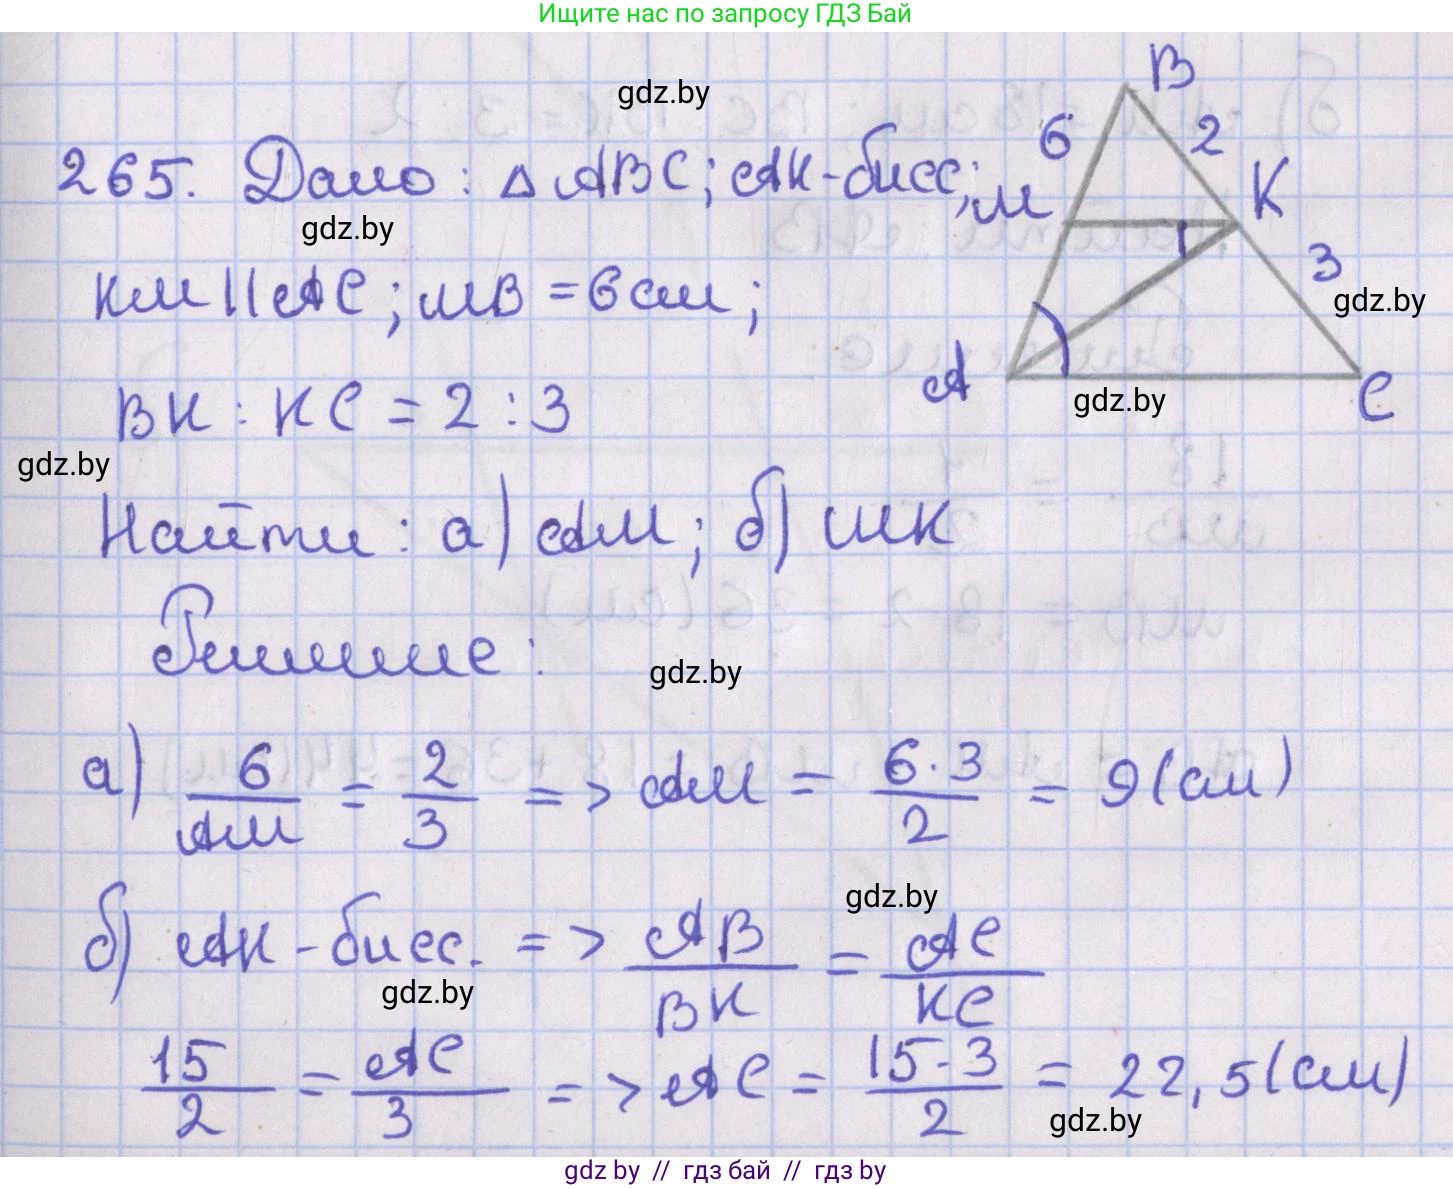 Ищите нас по запросу ГДЗ Бай
gdz.by
265. Дано: △ ABC; AK-бисс;
gdz.by
KM || AC; MB = 6 см;
BK : KC = 2 : 3
gdz.by
Найти: а) AM; б) MK
Решение:
gdz.by
а) 6/AM = 2/3 => AM = 6·3/2 = 9 (см)
gdz.by
б) AK - бисс. => AB/BK = AC/KC
gdz.by
15/2 = AC/3 => AC = 15·3/2 = 22,5 (см)
gdz.by
B
6
2
M
K
3
gdz.by
A
gdz.by
C
gdz by // гдз бай // gdz by